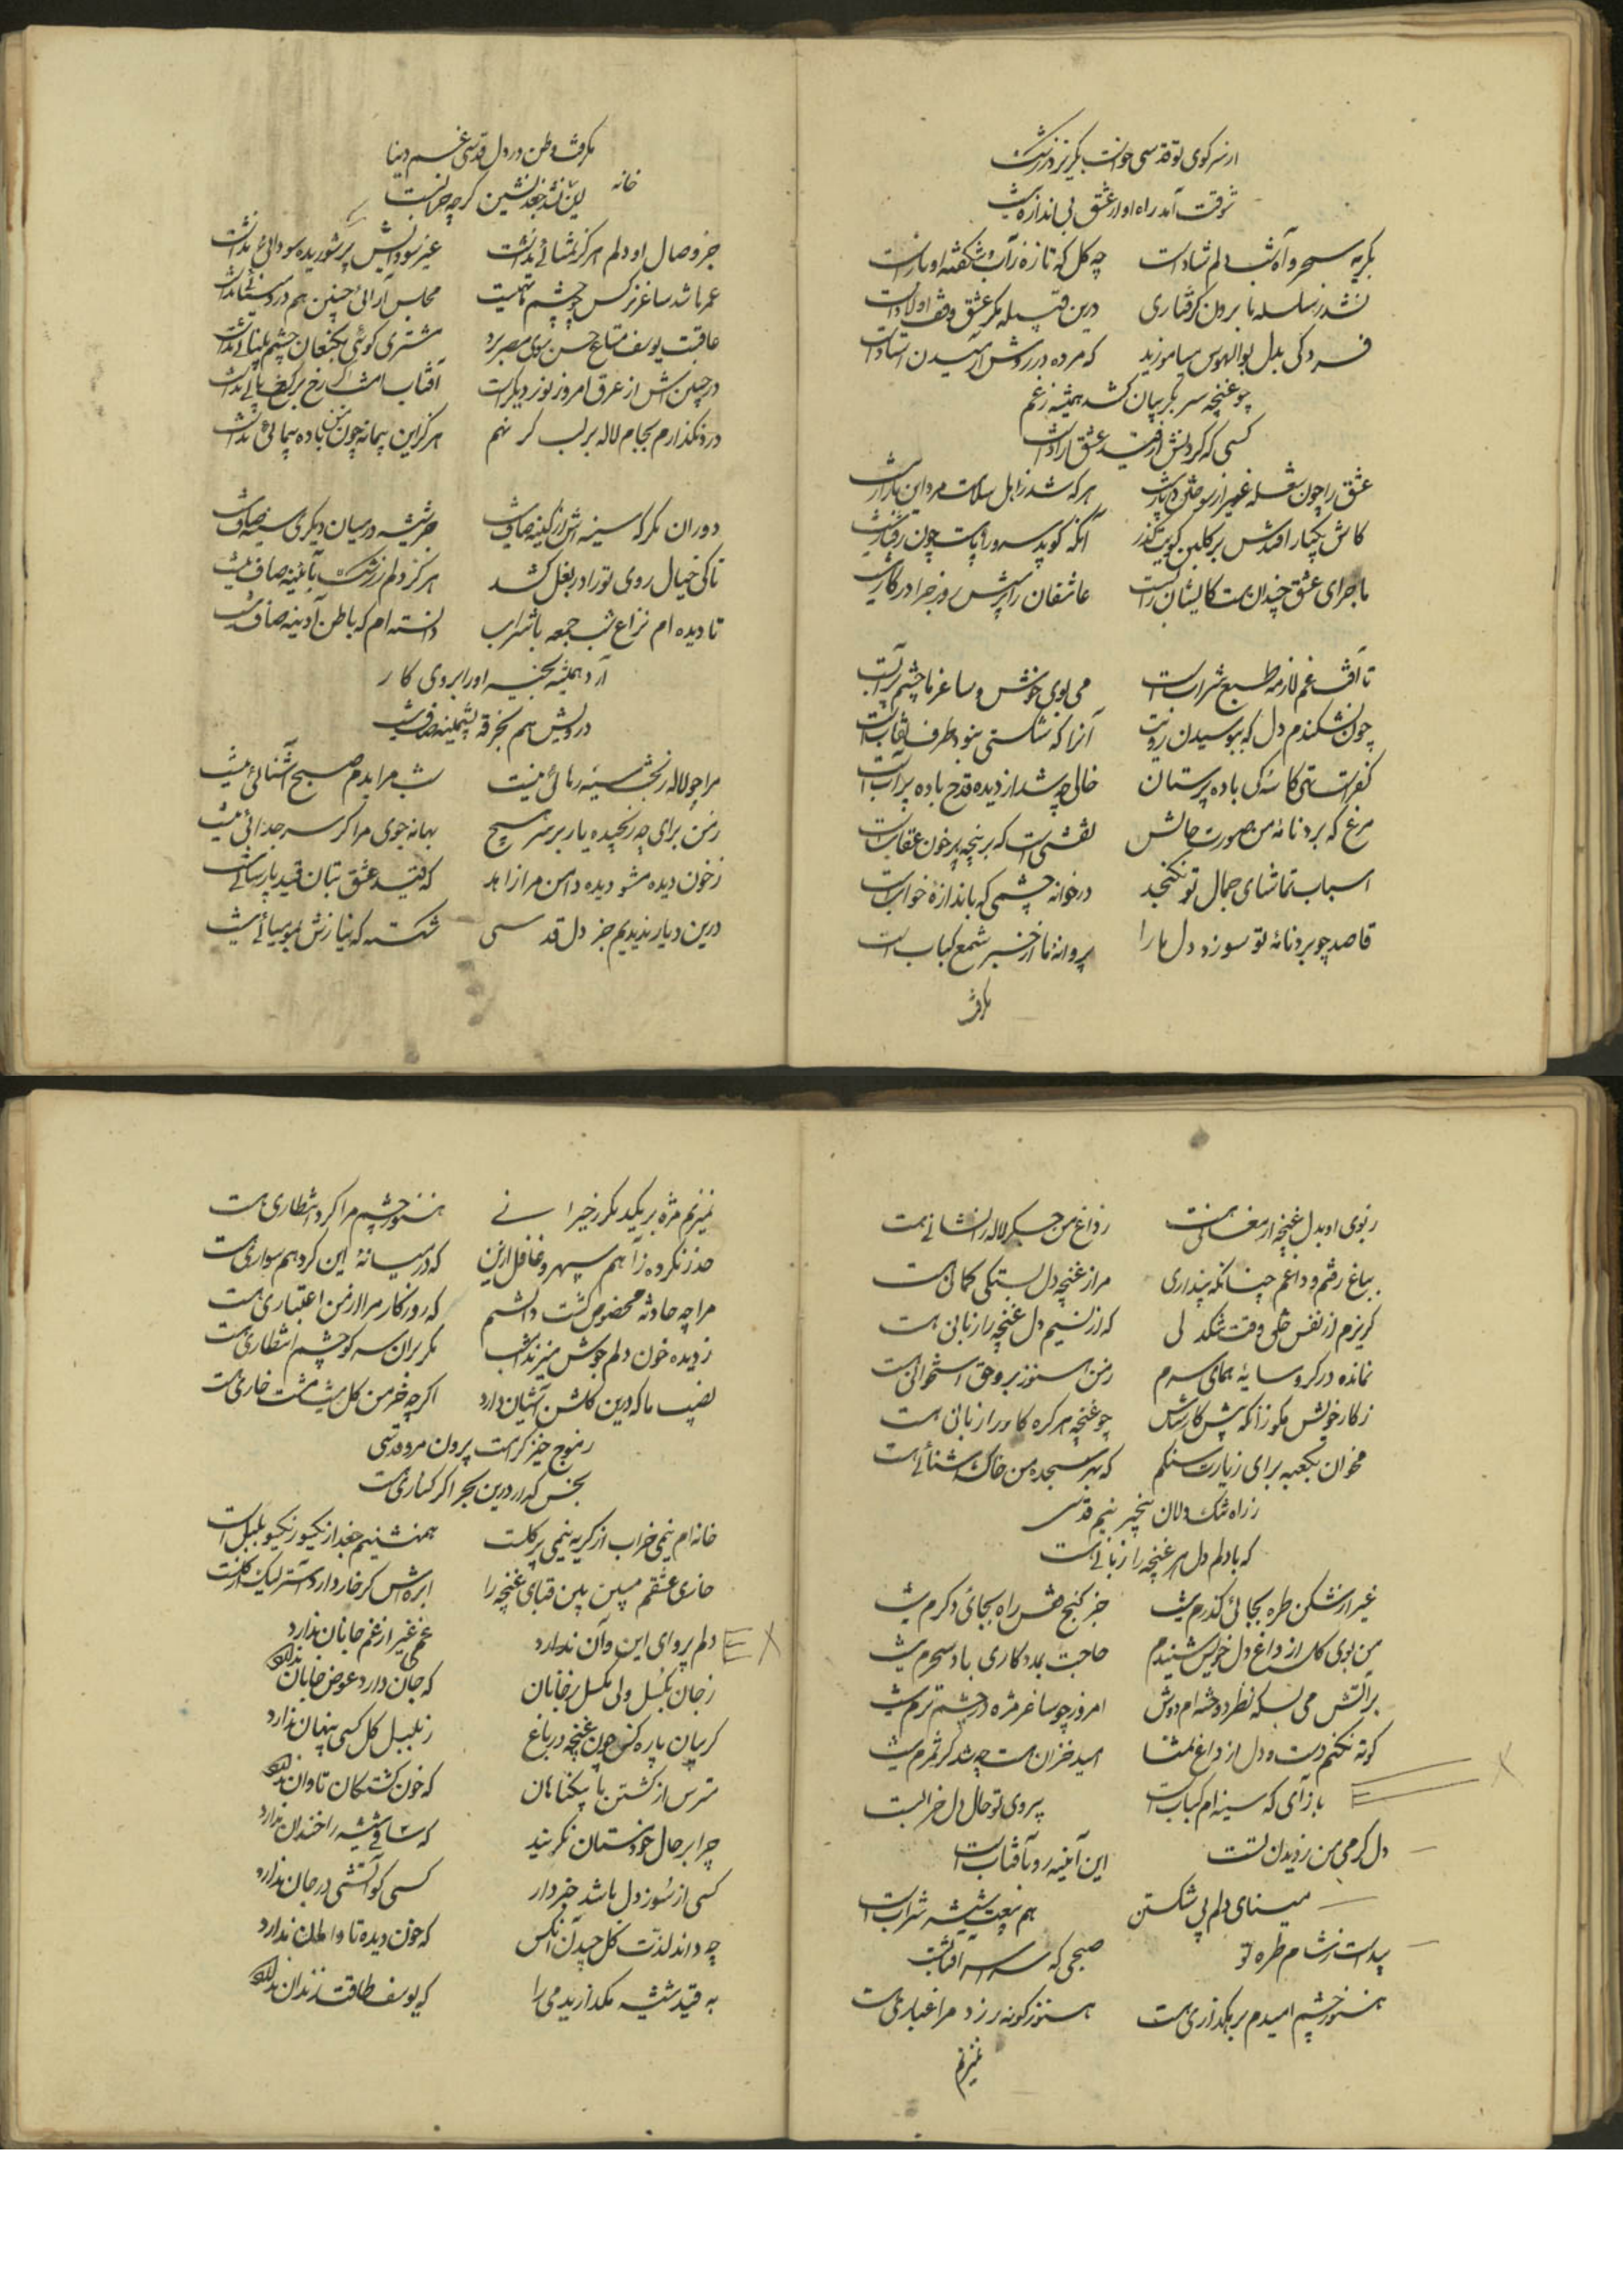 از سر کوی تو قدسی جوانب بگریز در نرفت
شوقت آمد راه او از عشق بی اندازه نیست
بگریه سحر و آه شب دلم شادست چه گل که تازه ز آب و شکفته او بادست
نشد ز سلسله ما برون گرفتاری درین قبیله مگر عشق وقف اولادست
فسردگی بدل بوالهوس میاموزید که مرده در روش آرمیدن استادست
چو غنچه سر بگریبان کشد همیشه ز غم
کسی که گردنش از قید عشق آزادست
عشق را چون شعله غیر از سوختن در بار نیست هر که شد ز اهل سلامت مرد این بازار نیست
کاش یکبار افتدش بر گلبن کویت گذر آنکه گوید سرو را پاست چون رفتار نیست
ماجرای عشق چندان هست کایشان را بست عاشقان را پرسش روز جزا در کار نیست
تا آفت غم لازمه طبع شرابست می بوی خوش و ساغر ما چشم پر آبست
چون نشکندم دل که ببوسیدن رویت آنرا که شکستی نبود طرف نقابست
کفرست تهی کاسه گی باده پرستان خالی چو شد از دیده قدح باده پر آبست
مرغی که برد نامه من صورت حالش نقشیست که بر پنجه پر خون عقابست
اسباب تماشای جمال تو نگنجد در خانه چشمی که باندازه خوابست
قاصد چو برد نامه تو سوزد دل ما را پروانه ما از خبر شمع کبابست
بگرفت
بگرفت وطن در دل قدسی غم دنیا
خانه
این نشد جغدنشین گرچه خرابست
جز وصال او دلم هرگز تمنائی نداشت غیر سودایش سر شوریده سودائی نداشت
عمر ما شد ساغر نرگس ز چشم ما تهیست مجلس آرائی چنین هم دردکش مینائی نداشت
عاقبت یوسف متاع حسن سوی مصر برد مشتری گوئی بکنعان چشم بینائی نداشت
در چمن نش از عرق امروز نور دیگرست آفتاب ما اگر رخ برگ
درد نگذارم بجام لاله بر لب گر نهم هرگز این پیمانه چون من باده پیمائی نداشت
دوران مگر که سینه اش از کینه صاف نیست جز شیشه در میان دیگری سینه صاف نیست
تا کی خیال روی تو را در بغل کشد هرگز دلم ز رشک بآئینه صاف نیست
تا دیده ام نزاع شب جمعه با شراب دانسته ام که باطن آدینه صاف نیست
آرد همیشه بخیه او را بروی کار
درویش هم بخرقه پشمینه صاف نیست
مرا چو لاله ز بخت سیه رهائی نیست شب مرا بدم صبح آشنائی نیست
ز من برای چه رنجیده یار بر سر هیچ بهانه جوی مرا گر سر جدائی نیست
ز خون دیده مشو دیده دامن مرا زاهد که قید عشق بتان قید پارسائی نیست
درین دیار ندیدیم جز دل قدسی شکسته که نیازش بمومیائی نیست
ز بوی او بدل غنچه ارمغانی هست ز داغ من جگر لاله را نشانی هست
بباغ رفتم و داغم چنانکه پنداری مرا ز غنچه دل بستگی گمانی هست
گریزم از نفس خلق وقت تنگ دلی که از نسیم دل غنچه را زیانی هست
نمانده در گرو سایه همای سرم ز من هنوز برو حق استخوانی هست
ز کار خویش مگو زانکه پیش کارشناس چو غنچه هر گره کار را زبانی هست
مخوان بکعبه برای زیارت سنگم که بهر سجده من خاک آستانی هست
ز راه تنگ دلان بیخبر نیم قدسی
که با دلم دل هر غنچه را زبانی هست
غیر از شکن طره بجائی گذرم نیست جز کنج قفس راه بجای دگرم نیست
من بوی گل از داغ دل خویش شنیدم حاجت بمددکاری باد سحرم نیست
بر آتش می بسکه نظر دوخته ام دوش امروز چو ساغر مژه در چشم ترم نیست
کوته نکنم دست و دل از داغ تمنا امید خزان هست چه شد گر ثمرم نیست
باز آی که سینه ام کبابست بیروی تو حال دل خرابست
دل گرمی من ز دیدن تست این آئینه رو بآفتابست
مینای دلم پی شکستن هم پیشه شیشه شرابست
پیداست ز شام طره تو صبحی که سراسر آفتابست
هنوز چشم امیدم برهگذاری هست هنوز گونه زرد مرا غباری هست
نمیزنم
نمیزنم مژه بر یکدگر ز خیرانی هنوز چشم مرا گرد انتظاری هست
حذر نکرده ز آهم سپهر و غافل ازین که در میانه این گرد هم سواری هست
مرا چه حادثه مخصوص گشت دانستم که روزگار مرا از من اعتباری هست
ز دیده خون دلم جوش میزند امشب مگر بران سر کو چشم انتظاری هست
نصیب ما که درین گلشن آشیان دارد اگرچه خرمن گل نیست مشت خاری هست
ز موج خیز کرامت برون مرو قدسی
بخس گذار درین بحر اگر کناری هست
خانه ام نیمی خراب از گریه نیمی پر گلست همنشینم جغد از یکسو ز یکسو بلبل است
خاری عشقم مبین بین قبای غنچه را ابره اش گر خار دارد آستر لیک از گلست
دلم پروای این و آن ندارد غمی غیر از غم جانان ندارد
ز جان بگسل ولی مگسل ز جانان که جان دارد عوض جانان ندارد
گریبان پاره کن چون غنچه در باغ ز بلبل گل کسی پنهان ندارد
مترس از کشتن ما بیگناهان که خون کشتگان تاوان ندارد
چرا بر حال خود مستان نگریند که ساقی شیشه را خندان ندارد
کسی از سوز دل باشد خبردار کسی کو آتشی در جان ندارد
چه داند لذت گل چیدن آنکس که خون دیده تا دامان ندارد
به قید شیشه مگذارید می را که یوسف طاقت زندان ندارد